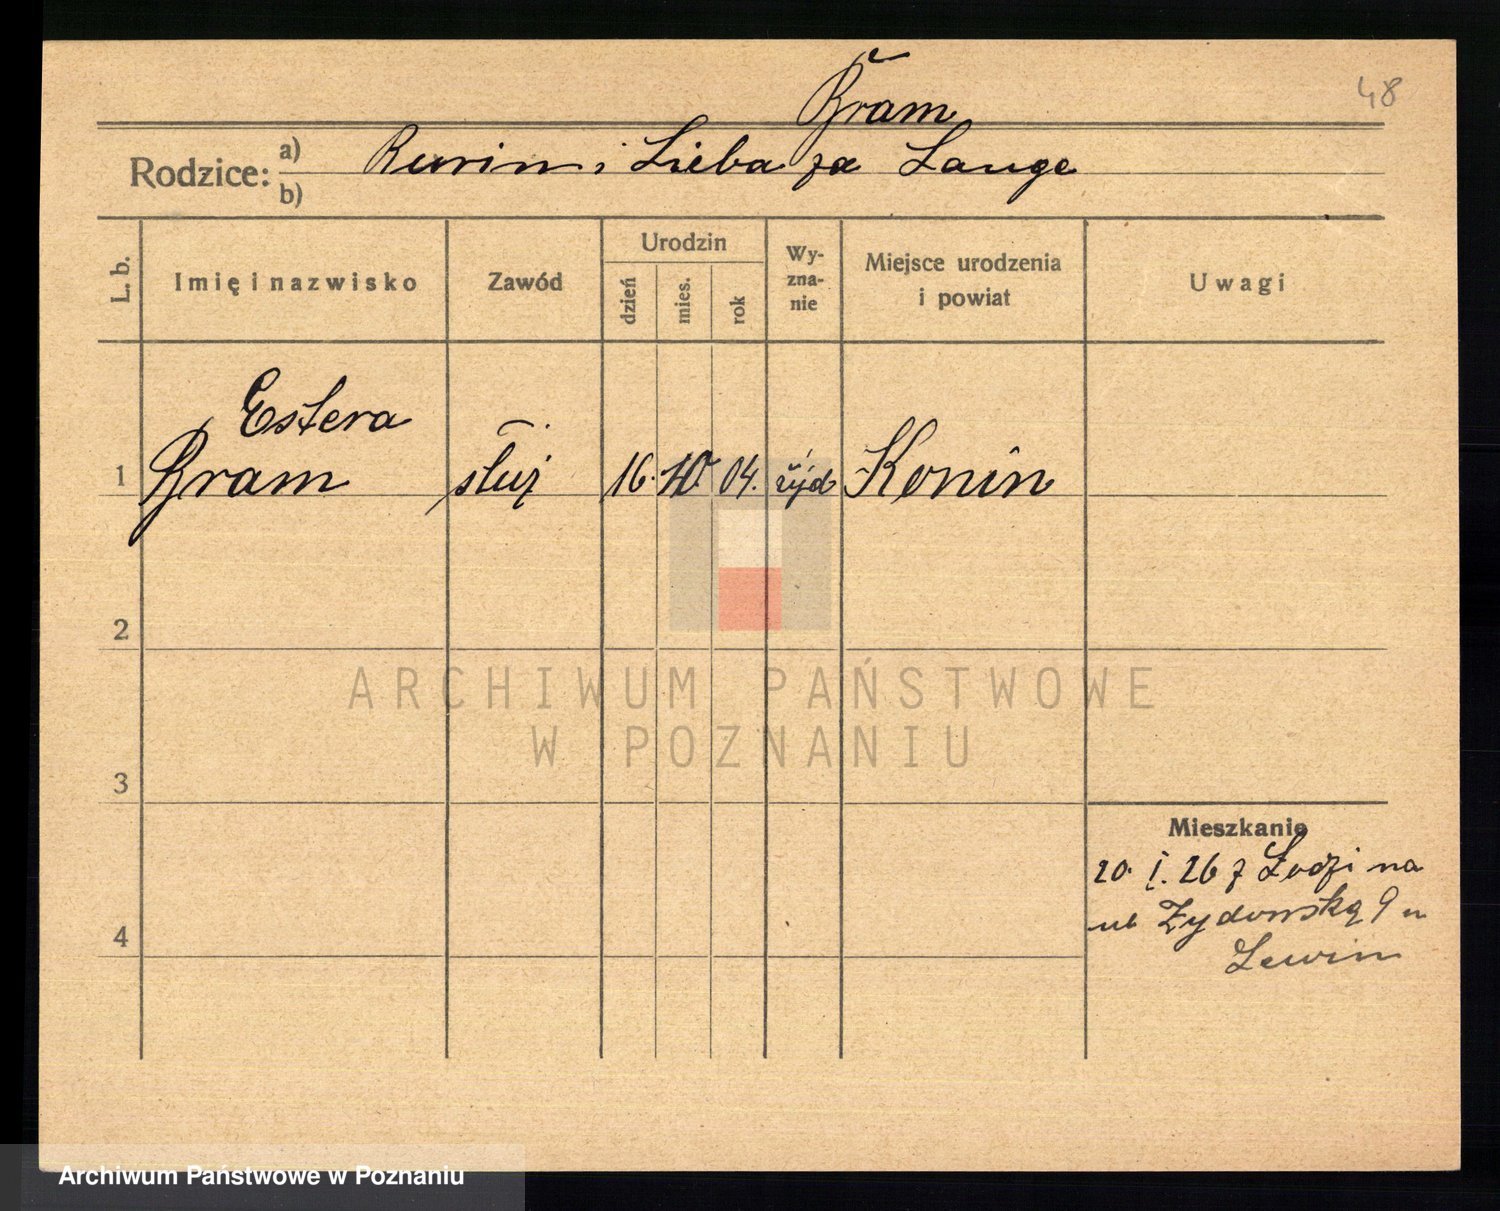 48
Bram
Rodzice: a) Ruvin i Lieba za Lange
b)
L. b. Imię i nazwisko Zawód Urodzin dzień mies. rok Wyznanie Miejsce urodzenia i powiat Uwagi
Estera
1 Bram służ 16. 10 04. żyd Konin
2
3
4
Mieszkanie
20. I. 26 z Lodzi na
ul Żydowską 9 u
Lewin
ARCHIWUM PAŃSTWOWE
W POZNANIU
Archiwum Państwowe w Poznaniu